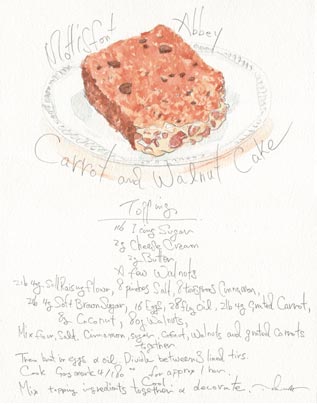 Mottisfont Abbey
Carrot and Walnut Cake
Topping
1lb Icing Sugar
Cheesy Cream
Butter
A few Walnuts
2lb 4oz Self Raising flour, 8 pinches Salt, 8 Cinnamon,
2lb 4oz Soft Brown Sugar, 16 Eggs, 28floz oil, 2lb 4oz grated Carrot,
8oz Coconut, 8oz Walnuts,
Mix flour, Salt, Cinnamon, sugar, coconut, Walnuts and grated Carrots
together
Then eggs & oil Divide between 8 lined tins.
Cook Gas mark 4/180° for approx 1 hour.
Cool
Mix topping ingredients together & decorate.